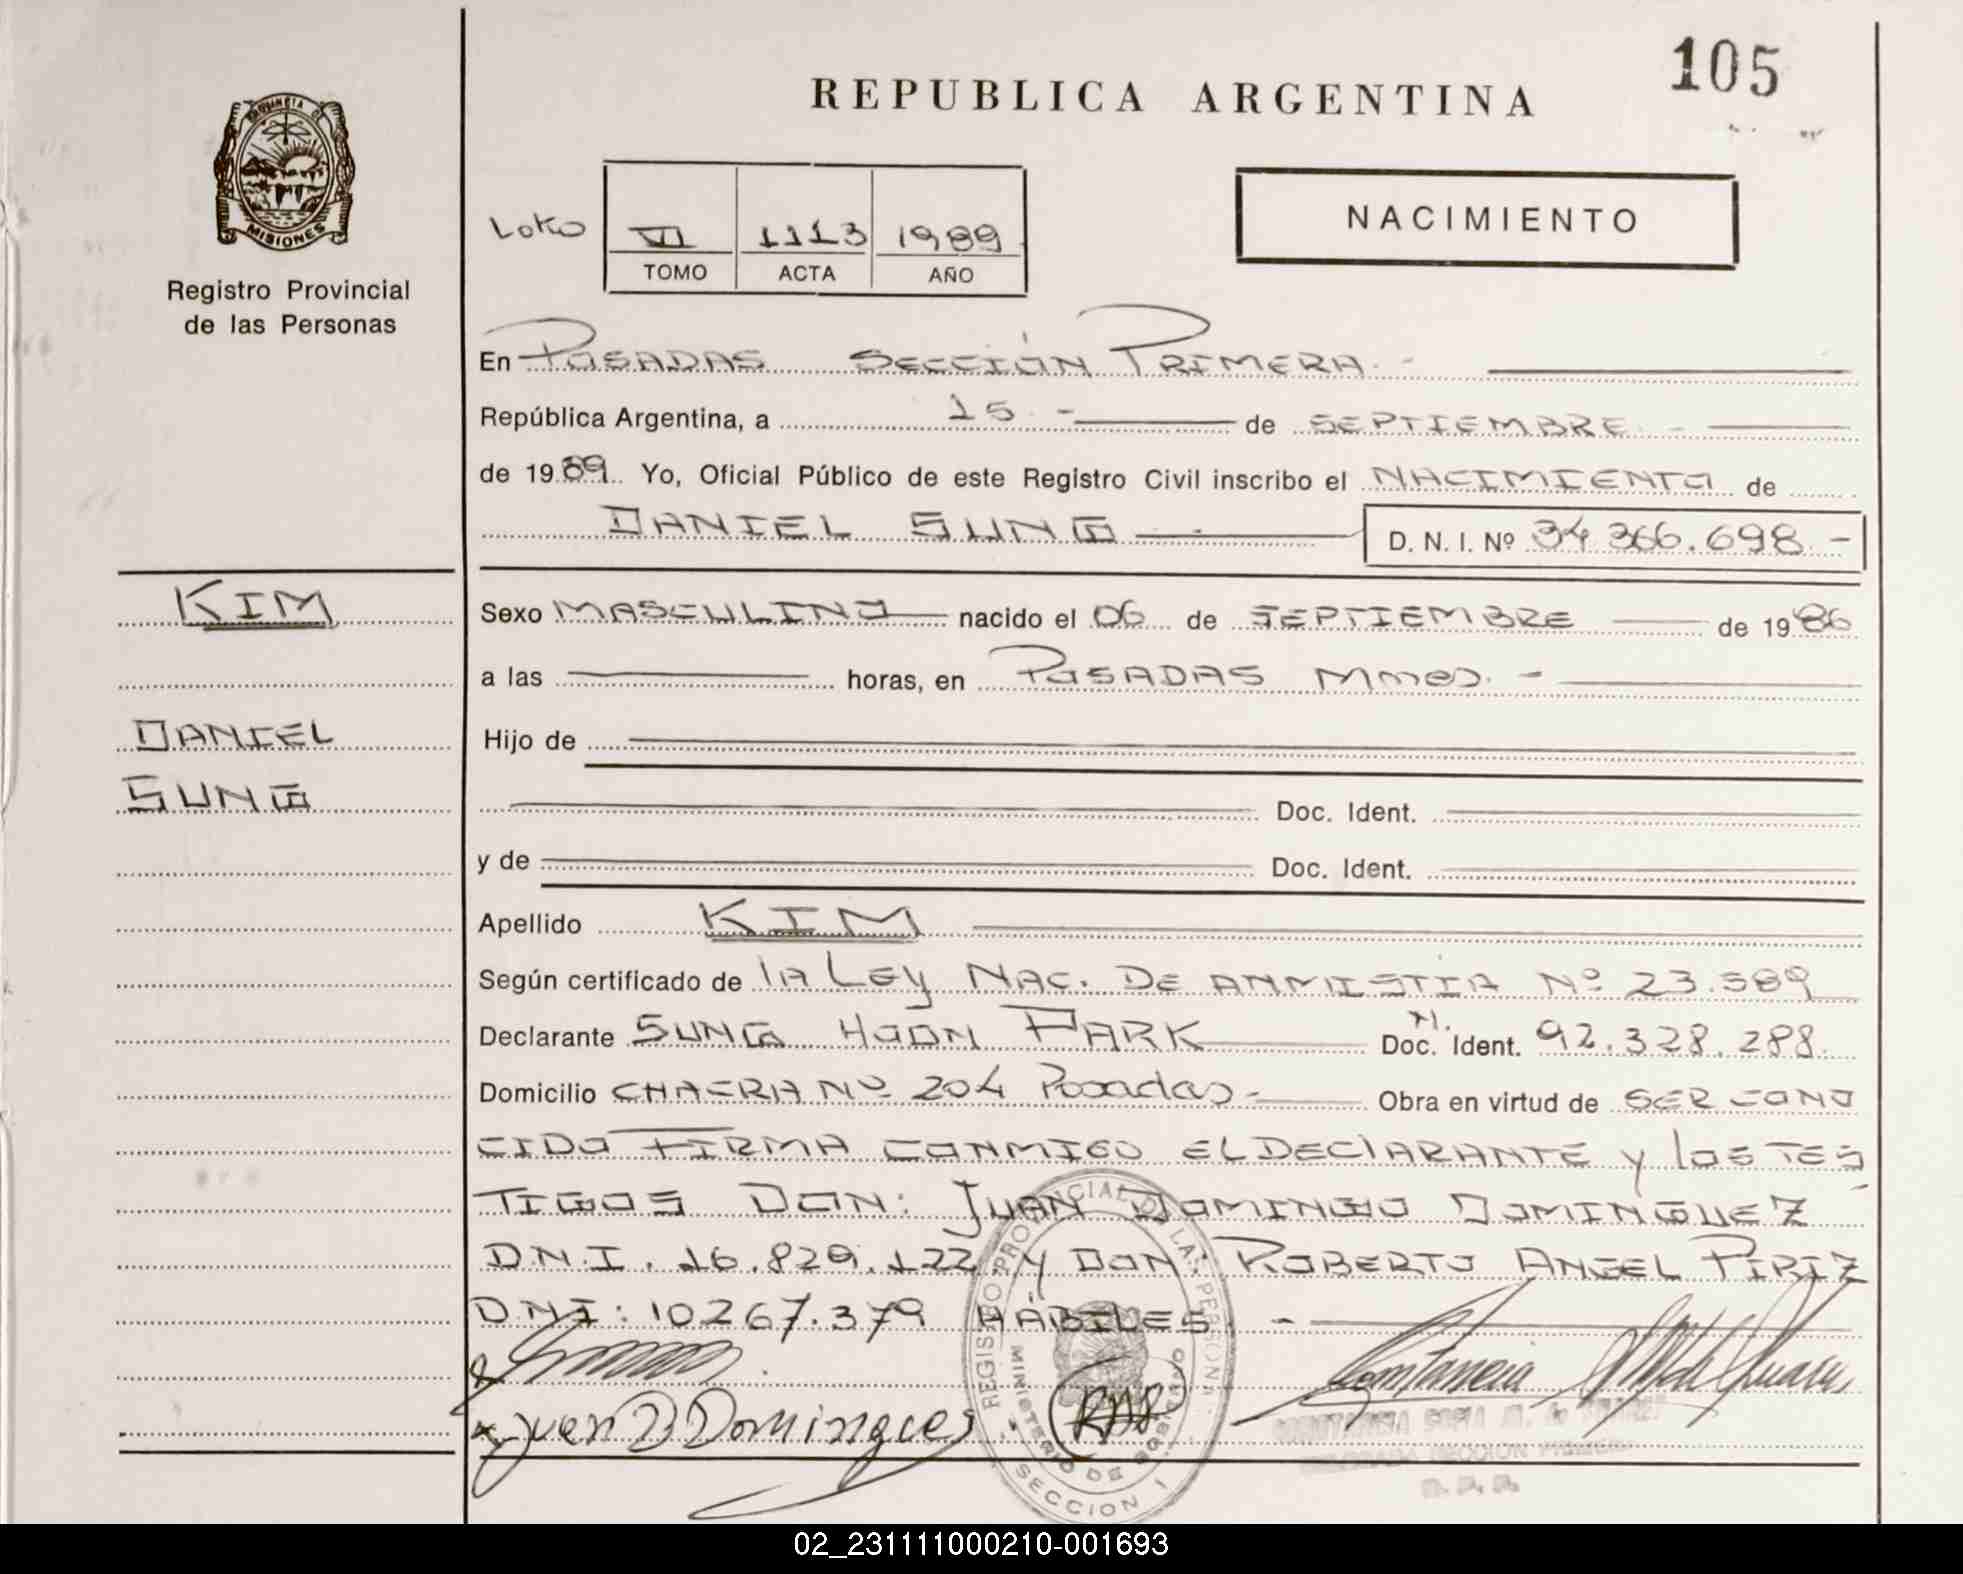 105
REPUBLICA ARGENTINA
PROVINCIA DE
MISIONES
Registro Provincial
de las Personas
VI 1113 1989
TOMO ACTA AÑO
NACIMIENTO
En POSADAS SECCIÓN PRIMERA.-
República Argentina, a 15 - de SEPTIEMBRE. -
de 1989. Yo, Oficial Público de este Registro Civil inscribo el NACIMIENTO de
DANIEL SUNG D. N. I. Nº 34 366.698.-
KIM
Sexo MASCULINO nacido el 06 de SEPTIEMBRE de 1986
a las horas, en POSADAS Mnes. -
DANIEL
SUNG
Hijo de
Doc. Ident.
y de Doc. Ident.
Apellido KIM
Según certificado de lA LEy NAC. DE ANMISTIA Nº 23.589
Declarante SUNG HOON PARK M. Doc. Ident. 92.328.288.
Domicilio CHACRA Nº 204 Posadas- Obra en virtud de SER CONO
CIDO FIRMA CONMIGO EL DEClARANTE y loS TES
TIGOS DON: JUAN DOMINGO DOMINGUEZ
D.N.I. 16.829.122 y DON: ROBERTO ANGEL PIRIZ
D.N.I: 10267.379 HÁBILES. -
Juan D Domingues
REGISTRO PROVINCIAL DE LAS PERSONAS
MINISTERIO DE GOBIERNO
SECCION 1
02_231111000210-001693